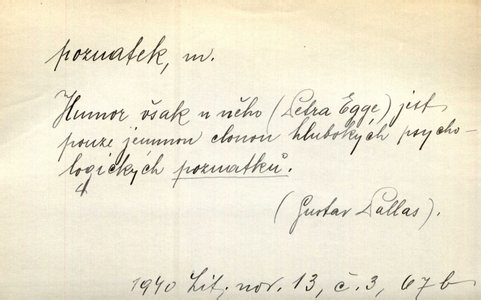 poznatek, m.
Humor však u něho (Petra Egge) jest
pouze jemnou clonou hlubokých psycho-
logických poznatků.
(Gustav Pallas).
1940 Lit. nov. 13, č. 3, 67 b